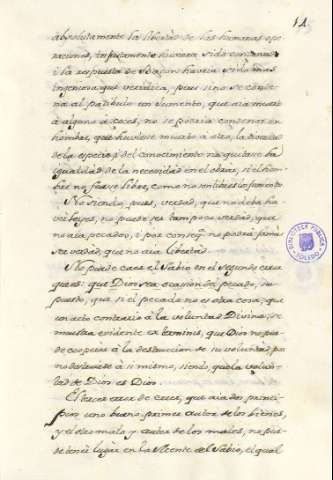 14
absolutamente la libertad de las humanas ope
raciones, injustamente huviera sido condenado
i la respuesta de haviera sido mas
ingeniosa que veridica, pues si no se conde
na al patibulo un Jumento, que aia muerto
à alguno a coces, no se podria condenar un
hombre, que huviese muerto a otro, la
de la especie i del conocimiento no quitase la
igualdad de la necesidad en el obrar, si el hom
bre no fuese libre, como no es libre el Jumento
No siendo, pues, verdad, que no deba ha
ver leyes, no puede ser tampoco verdad, que
no aia pecados, i por conseq.^a no podrà jamàs
ser verdad, que no aia libertad.
No puede caer el Sabio en el Segundo error
que es: que Dios sea ocasion del pecado, su
puesto, que si el pecado no es otra cosa, que
un acto contrario à la voluntad Divina, se
muestra evidente ex terminis, que Dios no pue
de cooperar à la destruccion de su voluntad, pu
no destruirse à si mismo, siendo que la volun
tad de Dios es Dios.
El tercer error de creer, que aia dos princi
pios uno bueno primer autor de los bienes,
y el otro malo y autor de los males, no pue
de tener lugar en la Mente del Sabio, el qual
BIBLIOTECA PUBLICA
TOLEDO